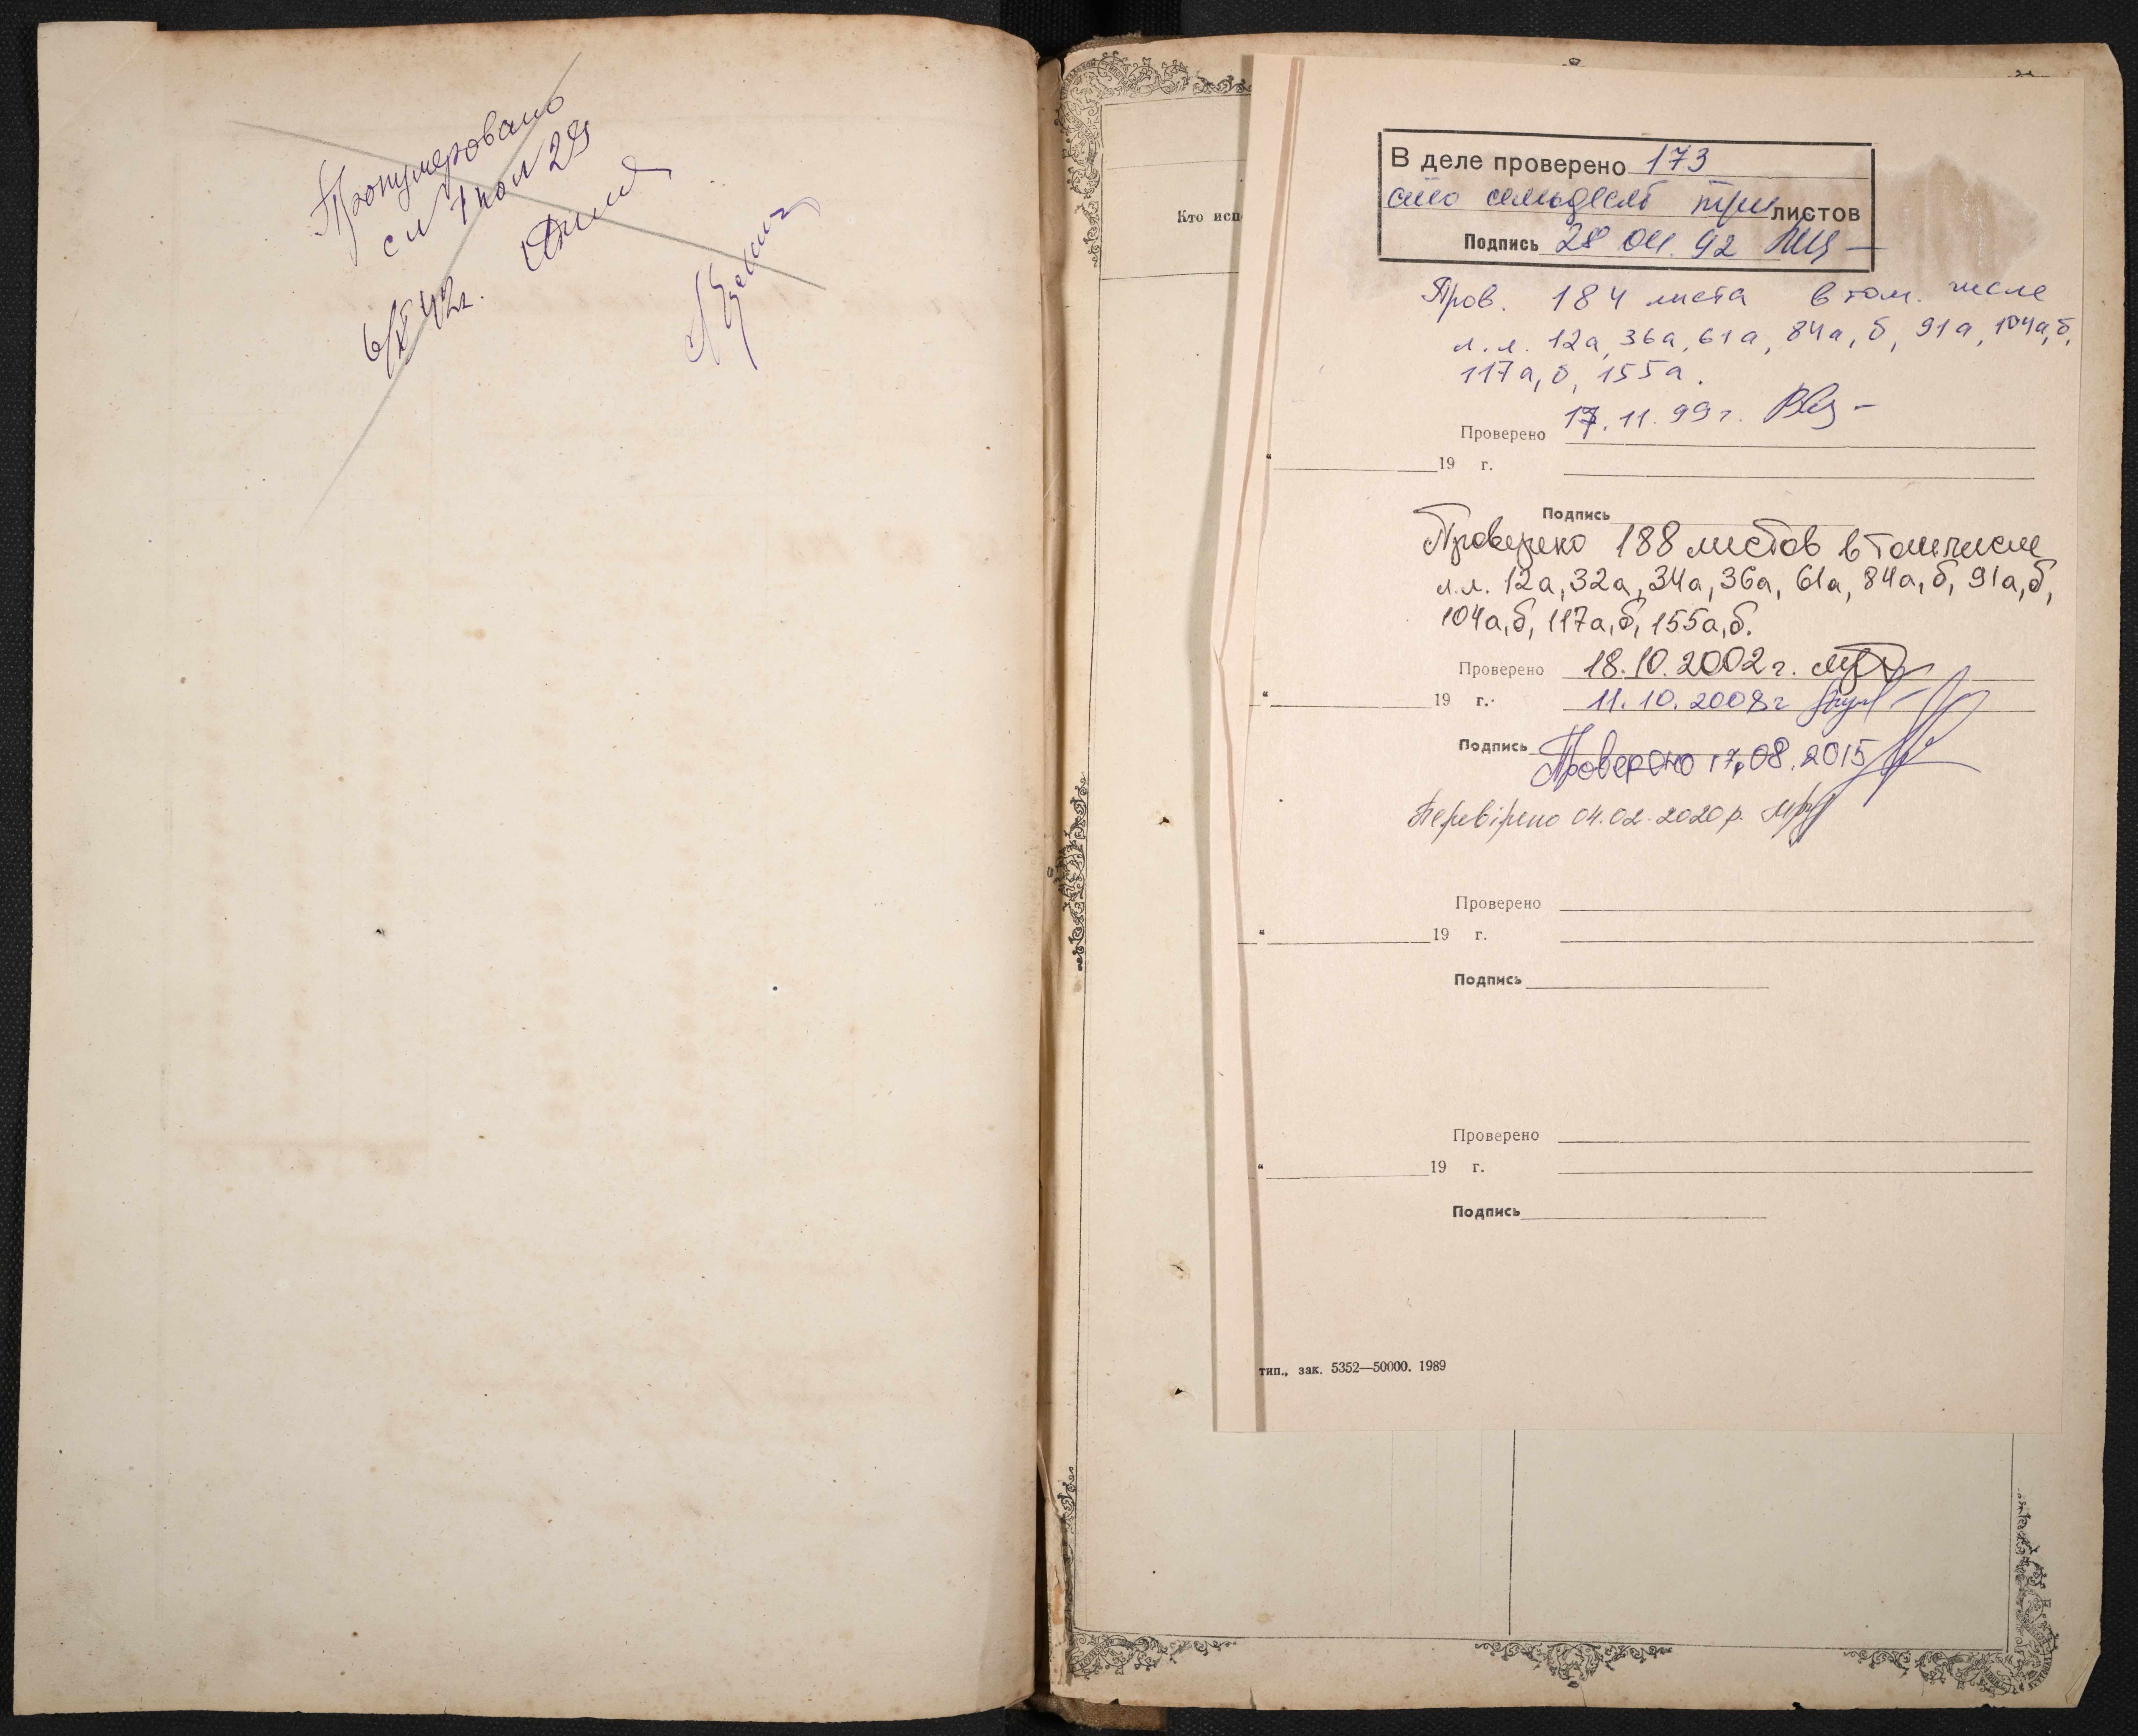 Пронумеровано
с № 1 по № 29
6/X 42г.
Кто исп
В деле проверено 173
сто семьдесят три листов
Подпись 28 04. 92
Пров. 184 листа в том. числе
л.л. 12а, 36а, 61а, 84а, б, 91а, 104а,б,
117а, б, 155а.
17. 11. 99 г.
Проверено
19 г.
Подпись
Проверено 188 листов в том числе
л.л. 12а, 32а, 34а, 36а, 61а, 84а, б, 91а, б,
104а, б, 117а, б, 155а, б.
Проверено 18.10.2002 г.
" 19 г. 11.10.2008г
Подпись Проверено 17.08.2015
Перевірено 04.02.2020 р.
Проверено
" 19 г.
Подпись
Проверено
" 19 г.
Подпись
тип., зак. 5352—50000. 1989